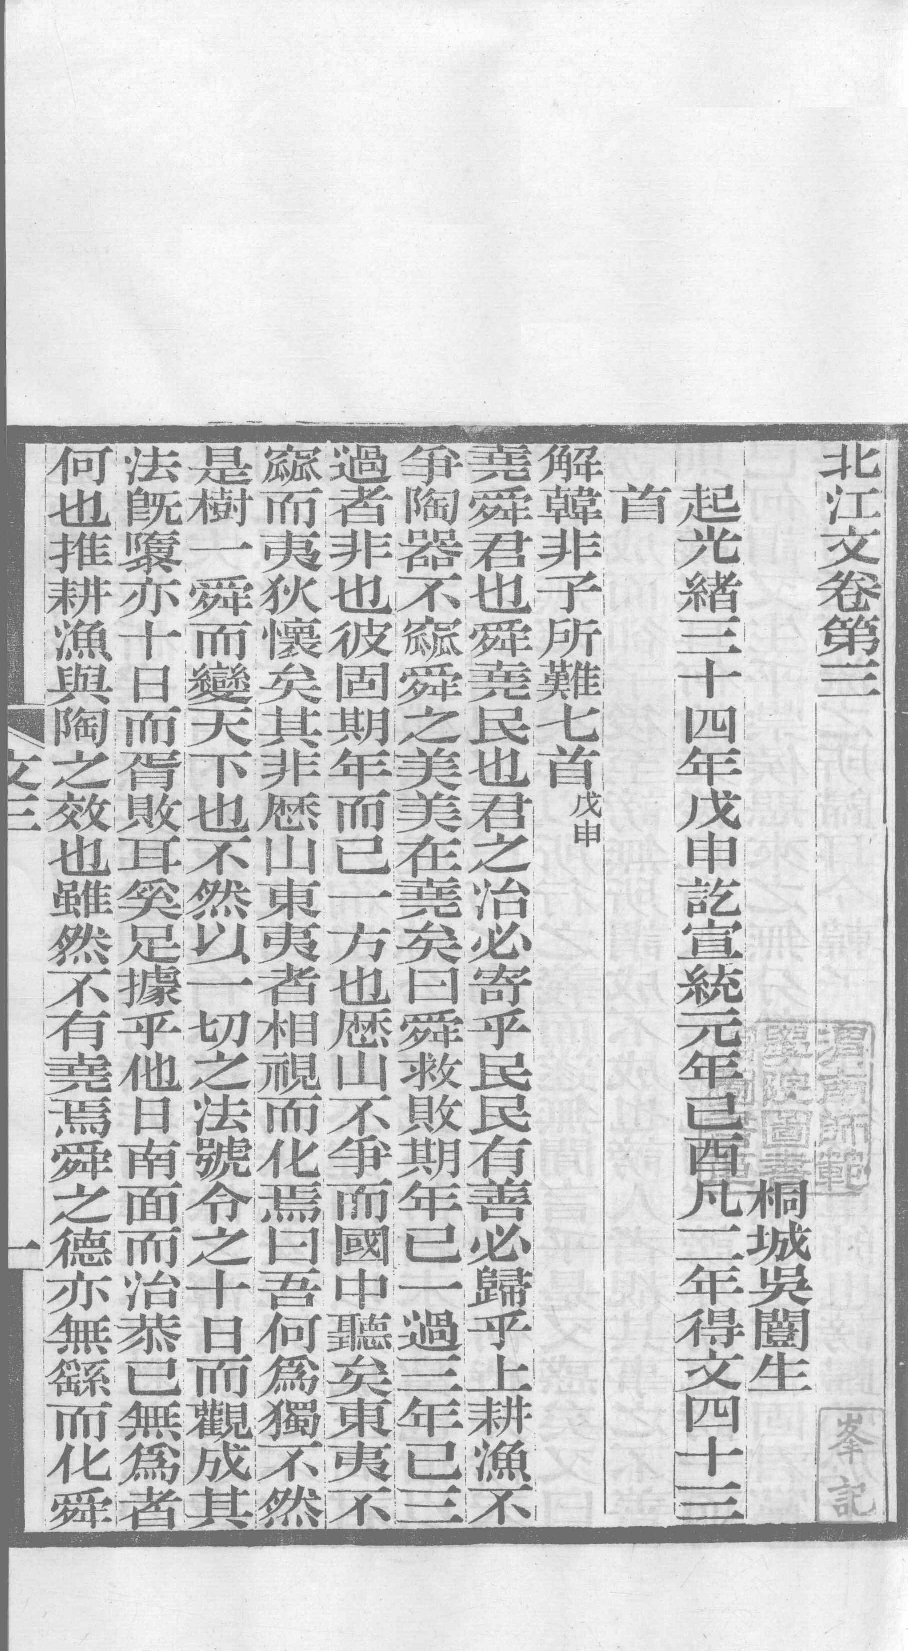 北江文卷第三
桐城吳闓生
起光緒三十四年戊申訖宣統元年己酉凡二年得文四十三
首
解韓非子所難七首戊申
堯舜君也舜堯民也君之治必寄乎民民有善必歸乎上耕漁不
爭陶器不窳舜之美美在堯矣曰舜救敗期年已一過三年已三
過者非也彼固期年而已一方也歷山不爭而國中聽矣東夷不
窳而夷狄懷矣其非歷山東夷者相視而化焉曰吾何爲獨不然
是樹一舜而變天下也不然以一切之法號令之十日而觀成其
法旣隳亦十日而胥敗耳奚足據乎他日南面而治恭已無爲者
何也推耕漁與陶之效也雖然不有堯焉舜之德亦無繇而化舜
文三
一
峯記